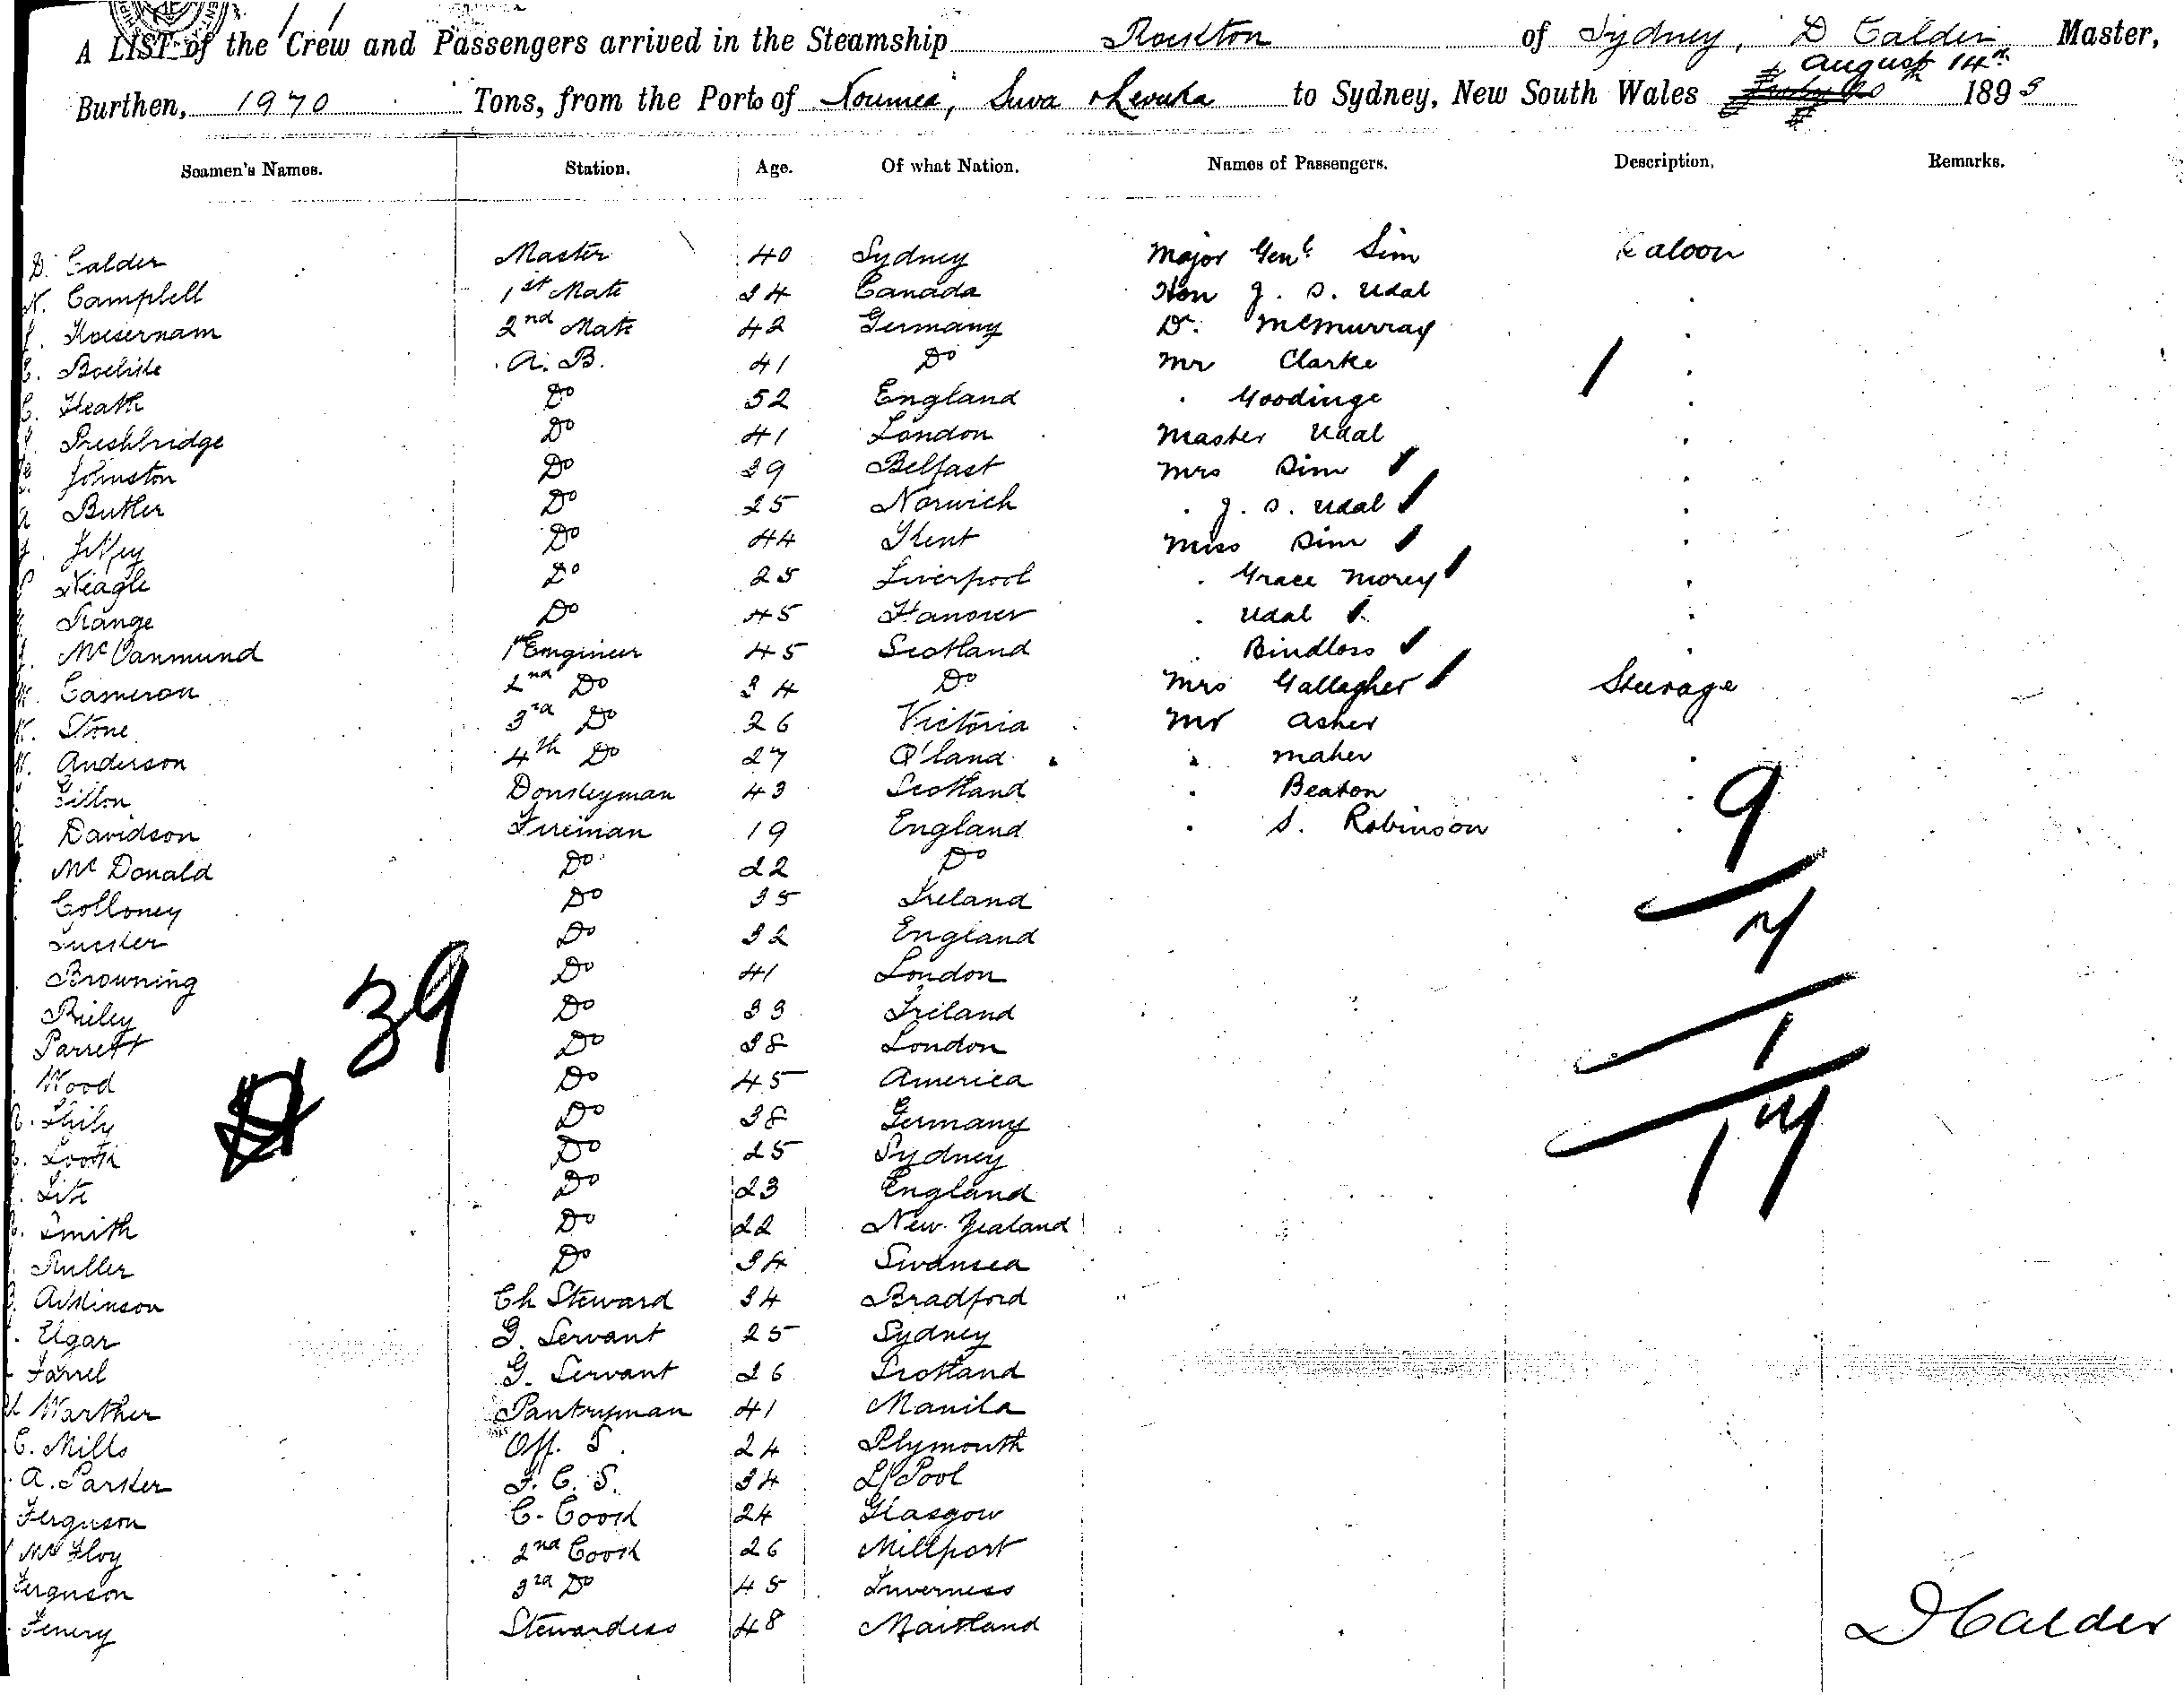 A LIST of the Crew and Passengers arrived in the Steamship Rockton of Sydney, D Calder Master,
August 14th
Burthen, 1970 Tons, from the Ports of Noumea, Suva & Levuka to Sydney, New South Wales 1895
Seamen's Names. Station. Age. Of what Nation. Names of Passengers. Description. Remarks.
D. Calder Master 40 Sydney Major Genl Sim Saloon
N. Campbell 1st Mate 34 Canada Hon J. S. Udal
2nd Mate 42 Germany Dr. McMurray
A. B. 41 Do Mr Clarke
C. Heath Do 52 England Goodinge
Do 41 London Master Udal
Johnston Do 39 Belfast Mrs Sim
A Butler Do 25 Norwich J. S. Udal
Do 44 Kent Miss Sim
Neagle Do 25 Liverpool Grace Morey
Do 45 Hanover Udal
J. 1st Engineer 45 Scotland Bindloss
Cameron 2nd Do 34 Do Mrs Gallagher Steerage
Stone 3rd Do 26 Victoria Mr Asher
Anderson 4th Do 27 Q'land Maher
Donkeyman 43 Scotland Beaton
Davidson Fireman 19 England S. Robinson
9
McDonald Do 22 Do
Colloney Do 35 Ireland
7
Tucker Do 32 England
Browning Do 41 London
39
Riley Do 33 Ireland
Parrett Do 38 London
1
Wood Do 45 America
Do 38 Germany
17
Do 25 Sydney
Do 23 England
Smith Do 22 New Zealand
Do 34 Swansea
Adkinson Ch Steward 34 Bradford
Elgar G. Servant 25 Sydney
Farrel G. Servant 26 Scotland
Warther Pantryman 41 Manila
C. Mills Off. S. 24 Plymouth
A. Parker F. C. S. 34 L/Pool
Ferguson C. Cook 24 Glasgow
2nd Cook 26 Millport
Ferguson 3rd Do 45 Inverness
Fenery Stewardess 48 Maitland
D Calder